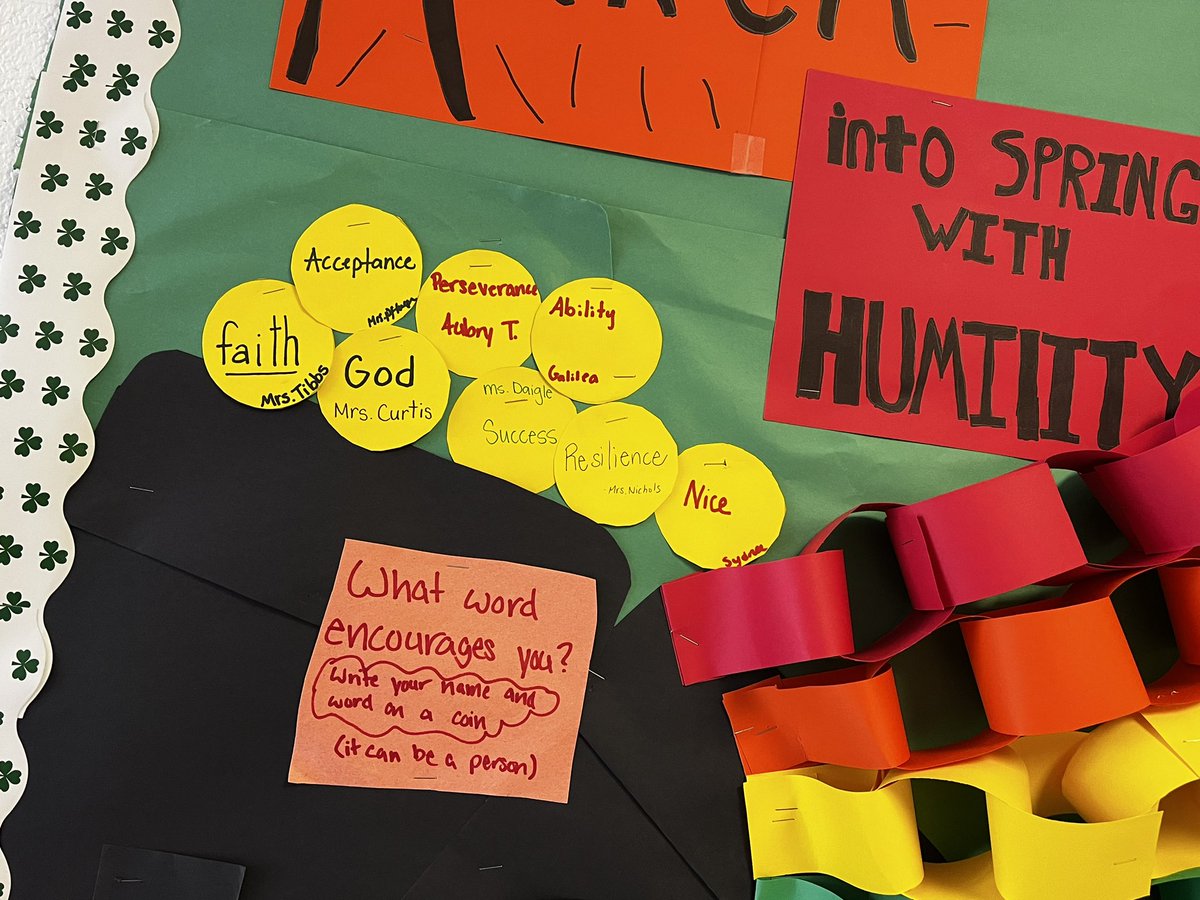 into SPRING
WITH
HUMIIITY
Acceptance
faith
Mrs. Tibbs
Perseverance
Aubry T.
Ability
Galilea
God
Mrs. Curtis
ms. Daigle
Success
Resilience
-Mrs. Nichols
Nice
Sydnee
What word
encourages you?
Write your name and
word on a coin
(it can be a person)